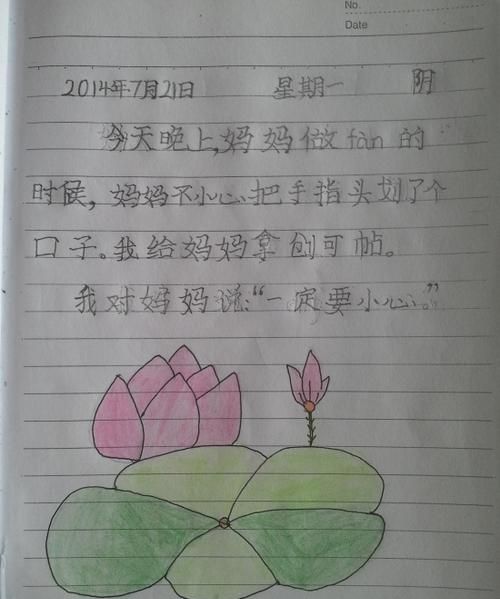 No.
Date
2014年7月21日 星期一 阴
今天晚上,妈妈做fàn的
时候,妈妈不小心把手指头划了个
口子。我给妈妈拿创可帖。
我对妈妈说:“一定要小心。”